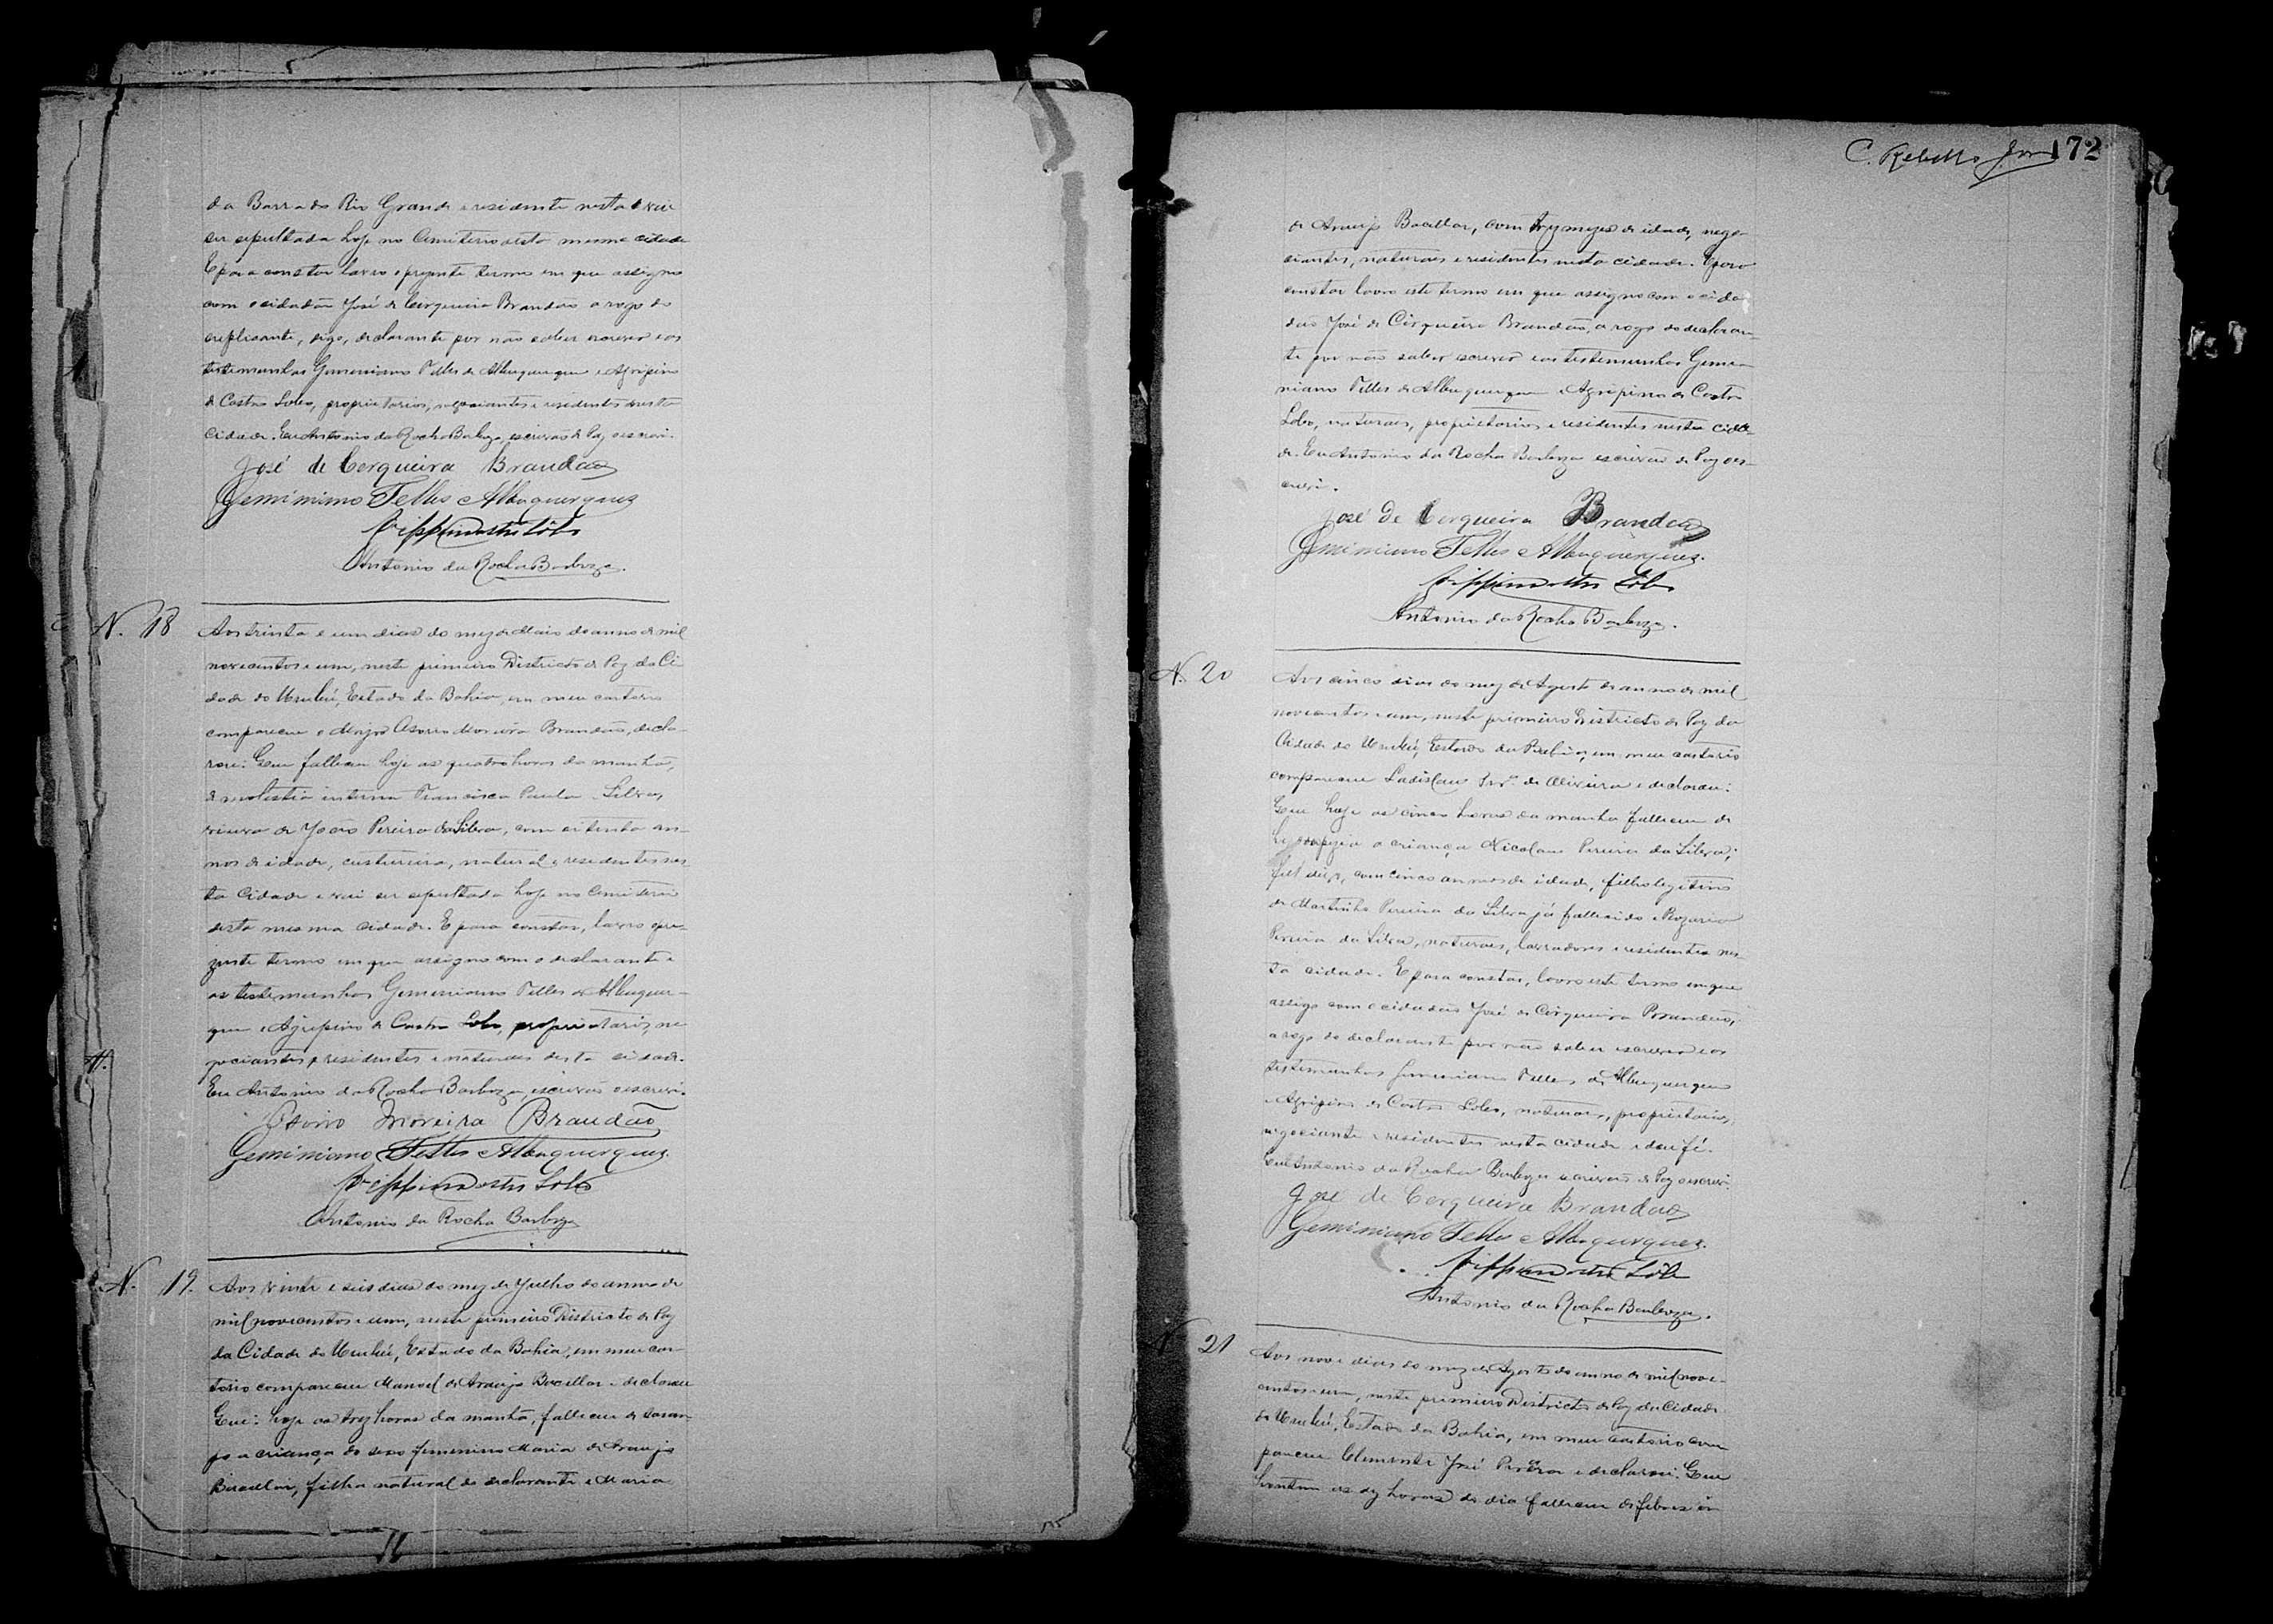 da Barra do Rio Grande e residente nesta e vai
ser sepultada hoje no Cemiterio desta mesma cidade
E para constar lavro o prezente termo em que assigno
com o cidadão José de Cerqueira Brandão a rogo do
suplicante, digo, declarante por não saber escrever e as
testemunhas Geminiano Telles de Albuquerque e Agripino
de Castro Lobo, proprietarios, negociantes e residentes nesta
Cidade. Eu Antonio da Rocha Barboza, escrivão de Paz o escrevi.
José de Cerqueira Brandão
Geminiano Telles e Albuquerque
Lobo
Antonio da Rocha Barboza.
N. 18 Aos trinta e um dias do mez de Maio do anno de mil
novecentos e um, neste primeiro Districto de Paz da Ci
dade do Urubú, Estado da Bahia, em meu cartorio
compareceu o Major Osorio Moreira Brandão, decla-
rou: Que falleceu hoje as quatro horas da manhã,
de molestia interna Francisca Paula Silva,
viuva de João Pereira da Silva, com oitenta an-
nos de idade, custureira, natural e residente nes
ta Cidade e vai ser sepultada hoje no Cemiterio
desta mesma cidade. E para constar, lavro o pre-
zente termo em que assigno com o declarante e
as testemunhas Geminiano Telles de Albuquer-
que e Agripino de Castro Lobo, proprietarios, ne
gociantes, residentes e naturaes desta cidade.
Eu Antonio da Rocha Barboza, escrivão o escrevi.
Osorio Moreira Brandão
Geminiano Telles e Albuquerque.
Lobo
Antonio da Rocha Barboza
N. 19. Aos vinte e seis dias do mez de Julho do anno de
mil novecentos e um, neste primeiro Districto de Paz
da Cidade do Urubú, Estado da Bahia, em meu car-
torio compareceu Manoel de Araujo Bacellar e declarou
Que: hoje as trez horas da manhã, falleceu de saram
po a criança do sexo femenino Maria de Araujo
Bacellar, filha natural do declarante e Maria
C. Rebello Jor 172
de Araujo Bacellar, com trez mezes de idade, nego-
ciantes, naturaes e residentes nesta cidade. E para
constar lavro este termo em que assigno com o cida
dão José de Cirqueira Brandão, a rogo do declaran-
te por não saber escrever e as testemunhas Gemi-
niano Telles de Albuquerque e Agripino de Castro
Lobo, naturaes, proprietarios e residentes nesta cida-
de. Eu Antonio da Rocha Barboza escrivão de Paz o es-
crevi.
José de Cerqueira Brandão
Geminiano Telles e Albuquerque.
Lobo
Antonio da Rocha Barboza.
N. 20 Aos cinco dias do mez de Agosto do anno de mil
novecentos e um, neste primeiro Districto de Paz da
Cidade do Urubú, Estado da Bahia, em meu cartorio
compareceu Ladislau de Oliveira e declarou:
Que hoje as cinco horas da manhã falleceu de
hydropizia a criança Nicolau Pereira da Silva;
digo, com cinco annos de idade, filho legitimo
de Martinho Pereira da Silva já fallecido e Rozaria
Pereira da Silva, naturaes, lavradores e residentes nes
ta cidade. E para constar, lavro este termo em que
assigo com o cidadão José de Cirqueira Brandão,
a rogo do declarante por não saber escrever e as
testemunhas Geminiano Telles de Albuquerque
e Agripino de Castro Lobo, naturaes, proprietarios,
negociante e residentes nesta cidade e dou fé.
Eu Antonio da Rocha Barboza escrivão de Paz o escrevi.
José de Cerqueira Brandão
Geminiano Telles e Albuquerque.
Lobo
Antonio da Rocha Barboza.
N 21 Aos nove dias do mez de Agosto do anno de mil nove-
centos e um, neste primeiro Districto de Paz da Cidade
do Urubú, Estado da Bahia, em meu cartorio com
pareceu Clemente José Pereira e declarou: Que
hontem as dez horas do dia falleceu de febres in